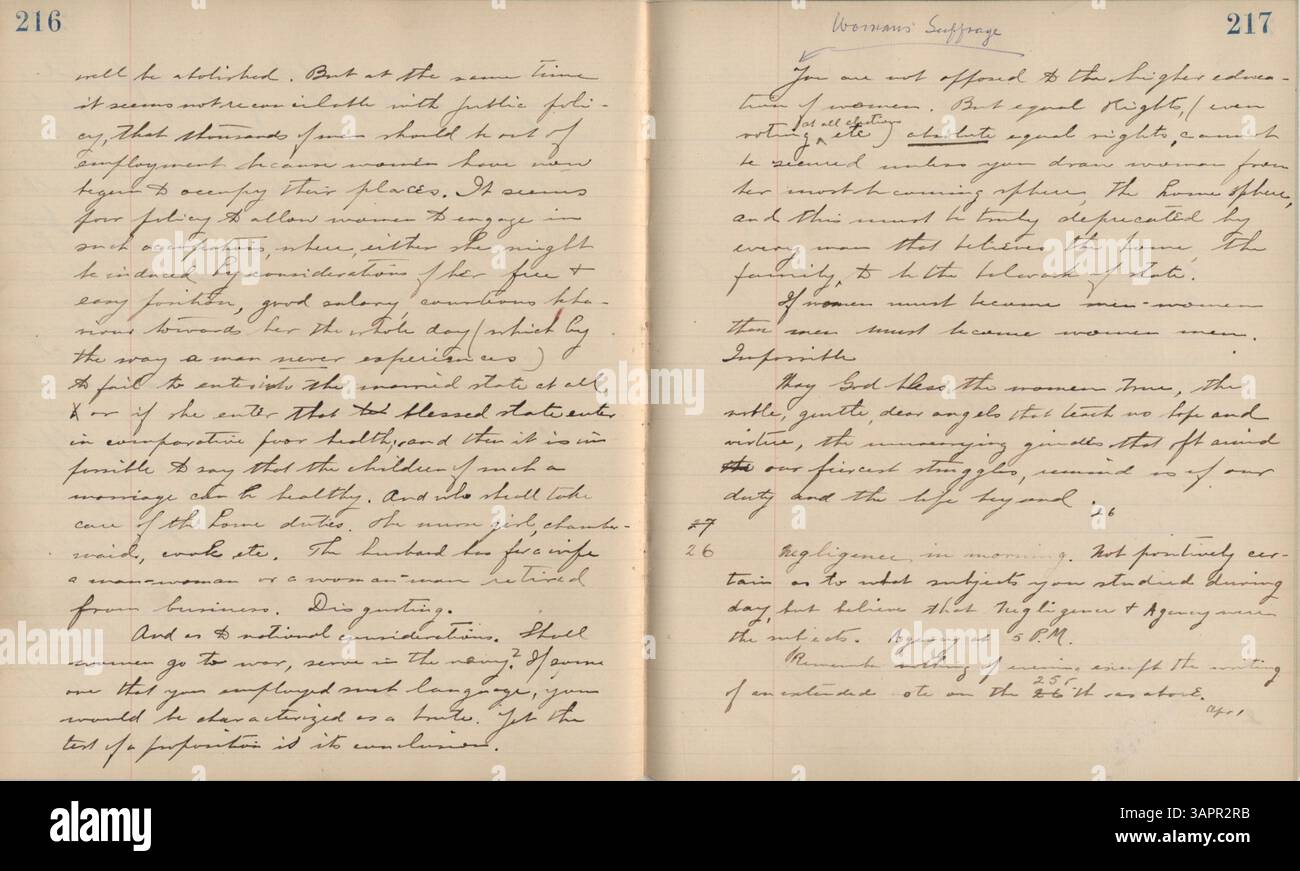 216
will be abolished. But at the same time
it seems not reconcilable with public poli-
cy, that thousands of men should be out of
employment because women have now
begun to occupy their places. It seems
poor policy to allow women to engage in
such occupations, where, either she might
be induced by considerations of her free +
easy position, good salary, courteous beha-
viour towards her the whole day (which by
the way a man never experiences)
to fail to enter into the married state at all
or if she enter that blessed state enter
in comparative poor health, and then it is im
possible to say that the children of such a
marriage can be healthy. And who shall take
care of the home duties. The nurse girl, chamber-
maid, cook etc. The husband has for a wife
a man-woman or a woman-man retired
from business. Disgusting.
And as to national considerations. Shall
women go to war, serve in the navy? If some
one that you employed such language, you
would be characterized as a brute. Yet the
test of a proposition is its conclusion.
Womans Suffrage
217
You are not opposed to the higher educa-
tion of women. But equal Rights, (even
at all elections
voting etc) absolute equal rights, cannot
be secured unless you draw woman from
her most becoming sphere, the home sphere,
and this must be truly deprecated by
every man that believes the home, the
family, to be the bulwark of state.
If women must become men-women
then men must become women men.
Impossible
May God bless the women true, the
noble, gentle, dear angels that teach us hope and
virtue, the unwearying guides that oft amid
the our fiercest struggles, remind us of our
duty and the life beyond.
26
27
26 Negligence in morning. Not positively cer-
tain as to what subjects you studied during
day, but believe that Negligence + Agency were
the subjects. Agency at 5 P.M.
Remember nothing of evening except the writing
25
of an extended note on the 26th as above.
Apr 1
alamy
Image ID: 3APR2RB
www.alamy.com